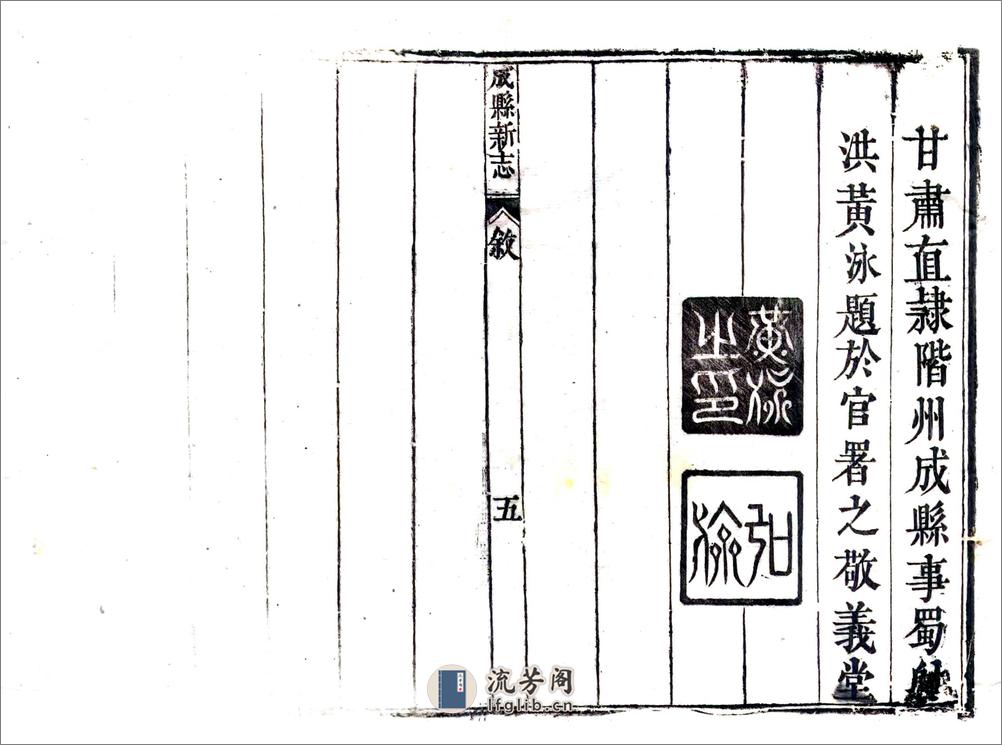 甘肅直隸階州成縣事蜀射
洪黃泳題於官署之敬義堂
黃泳之印
成縣新志
敘
五
流芳阁
lfglib.cn